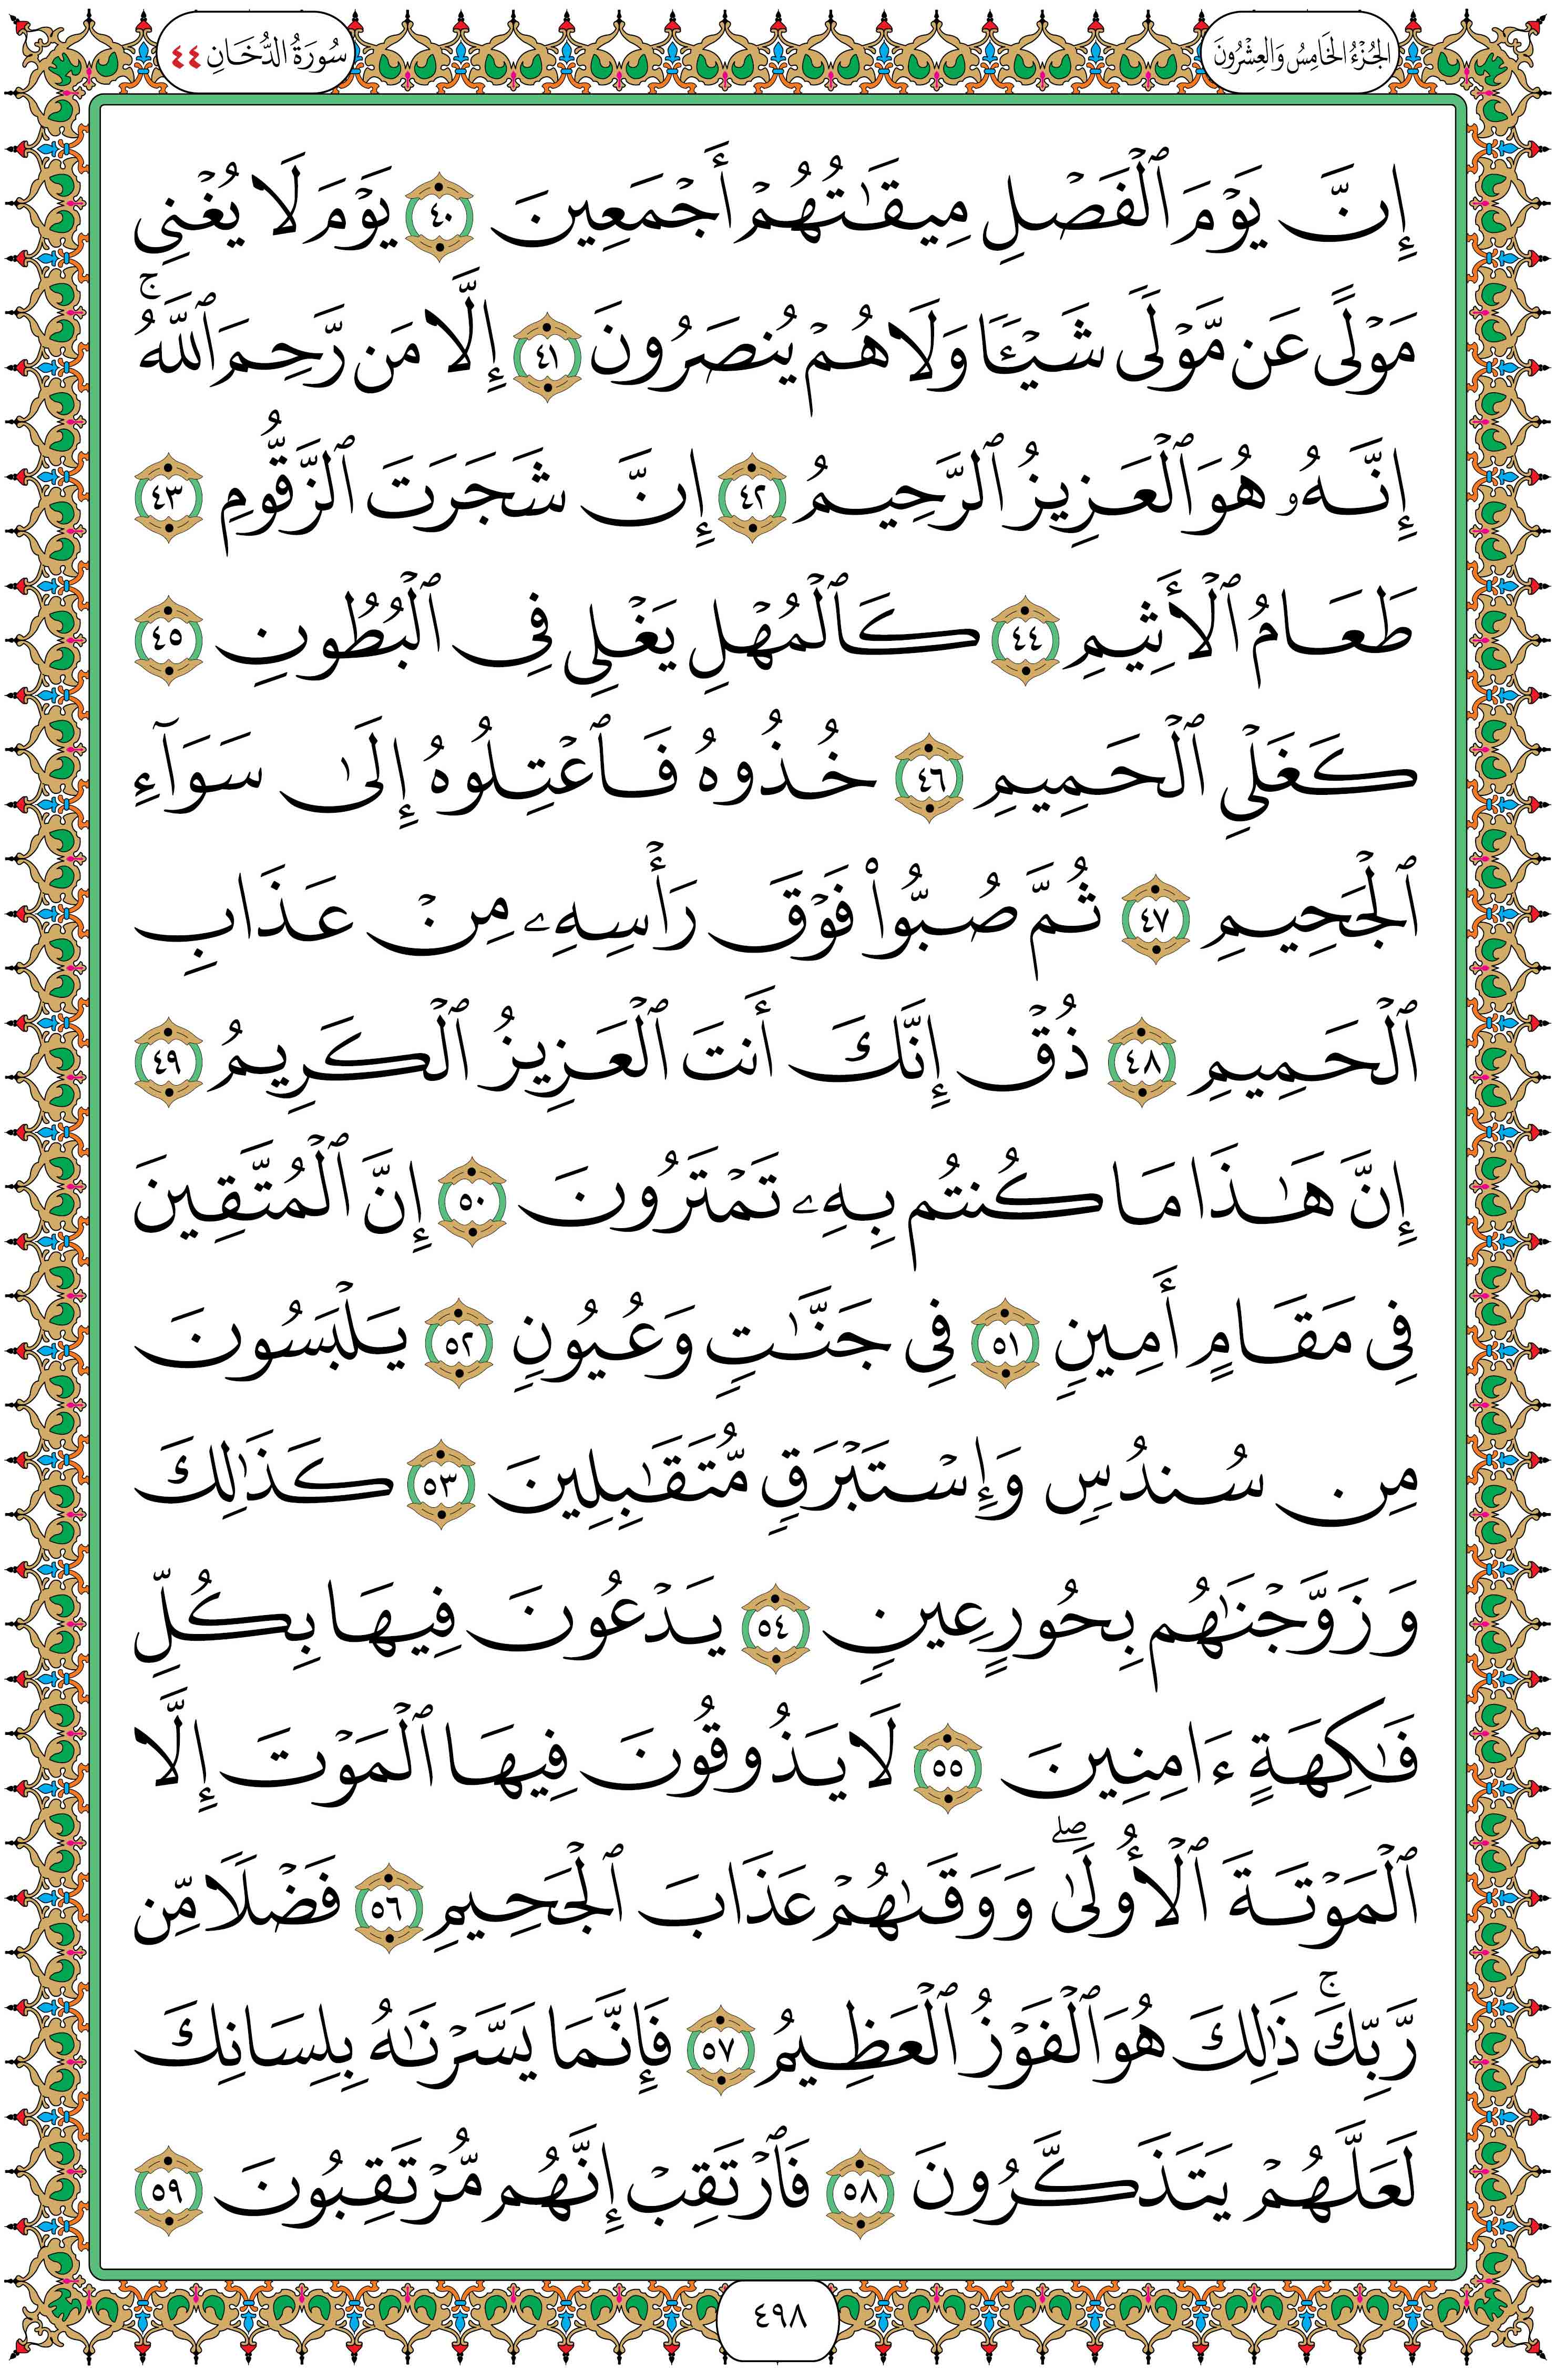 الجُزْءُ الخَامِسُ وَالعِشْرُونَ
سُورَةُ الدُّخَانِ ٤٤
إِنَّ يَوْمَ ٱلْفَصْلِ مِيقَٰتُهُمْ أَجْمَعِينَ ٤٠ يَوْمَ لَا يُغْنِى
مَوْلًى عَن مَّوْلًى شَيْـًٔا وَلَا هُمْ يُنصَرُونَ ٤١ إِلَّا مَن رَّحِمَ ٱللَّهُ ۚ
إِنَّهُۥ هُوَ ٱلْعَزِيزُ ٱلرَّحِيمُ ٤٢ إِنَّ شَجَرَتَ ٱلزَّقُّومِ ٤٣
طَعَامُ ٱلْأَثِيمِ ٤٤ كَٱلْمُهْلِ يَغْلِى فِى ٱلْبُطُونِ ٤٥
كَغَلْىِ ٱلْحَمِيمِ ٤٦ خُذُوهُ فَٱعْتِلُوهُ إِلَىٰ سَوَآءِ
ٱلْجَحِيمِ ٤٧ ثُمَّ صُبُّوا۟ فَوْقَ رَأْسِهِۦ مِنْ عَذَابِ
ٱلْحَمِيمِ ٤٨ ذُقْ إِنَّكَ أَنتَ ٱلْعَزِيزُ ٱلْكَرِيمُ ٤٩
إِنَّ هَٰذَا مَا كُنتُم بِهِۦ تَمْتَرُونَ ٥٠ إِنَّ ٱلْمُتَّقِينَ
فِى مَقَامٍ أَمِينٍ ٥١ فِى جَنَّٰتٍ وَعُيُونٍ ٥٢ يَلْبَسُونَ
مِن سُندُسٍ وَإِسْتَبْرَقٍ مُّتَقَٰبِلِينَ ٥٣ كَذَٰلِكَ
وَزَوَّجْنَٰهُم بِحُورٍ عِينٍ ٥٤ يَدْعُونَ فِيهَا بِكُلِّ
فَٰكِهَةٍ ءَامِنِينَ ٥٥ لَا يَذُوقُونَ فِيهَا ٱلْمَوْتَ إِلَّا
ٱلْمَوْتَةَ ٱلْأُولَىٰ ۖ وَوَقَىٰهُمْ عَذَابَ ٱلْجَحِيمِ ٥٦ فَضْلًا مِّن
رَّبِّكَ ۚ ذَٰلِكَ هُوَ ٱلْفَوْزُ ٱلْعَظِيمُ ٥٧ فَإِنَّمَا يَسَّرْنَٰهُ بِلِسَانِكَ
لَعَلَّهُمْ يَتَذَكَّرُونَ ٥٨ فَٱرْتَقِبْ إِنَّهُم مُّرْتَقِبُونَ ٥٩
٤٩٨